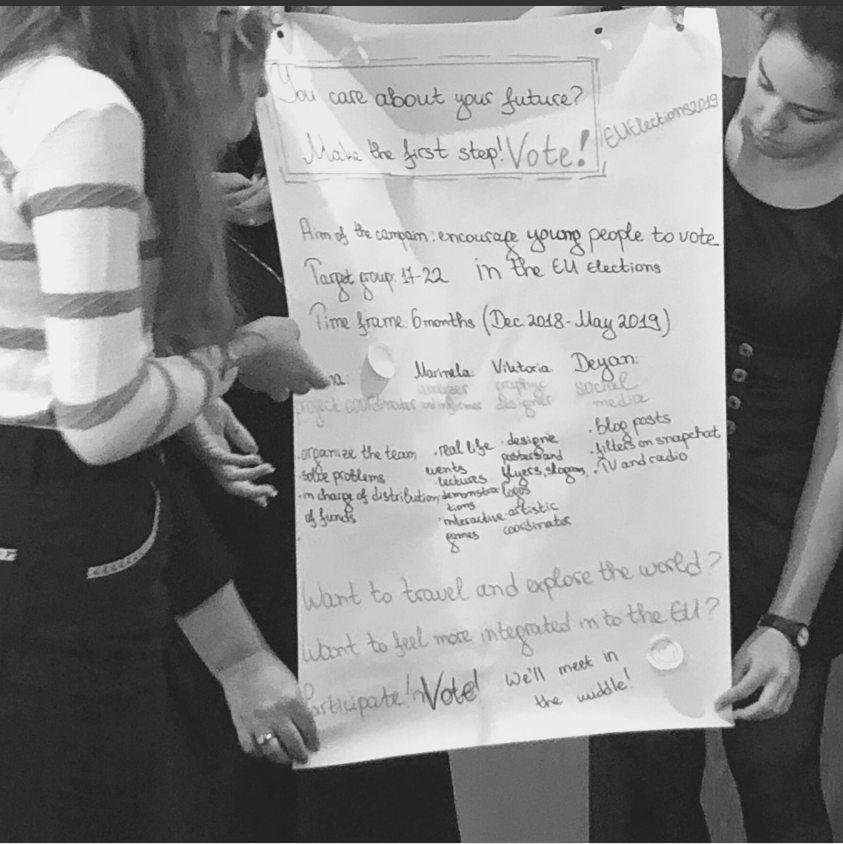 You care about your future?
Make the first step! Vote!
#EUElections2019
Aim of the campain: encourage young people to vote
in the EU Elections
Target group: 17-22
Time frame: 6 months (Dec 2018-May 2019)
na:
project coordinator
·organize the team
·solve problems
·in charge of distribution
of funds
Marinela:
analyzer
·real life
·lectures
·demonstra-
tions
·interactive
games
Viktoria:
graphic
designer
·designe
posters and
flyers, slogans,
logos
·artistic
coordinator
Deyan:
social
media
·blog posts
·filters on snapchat
·TV and radio
Want to travel and explore the world?
Want to feel more integrated in to the EU?
Participate! Vote!
We'll meet in
the middle!